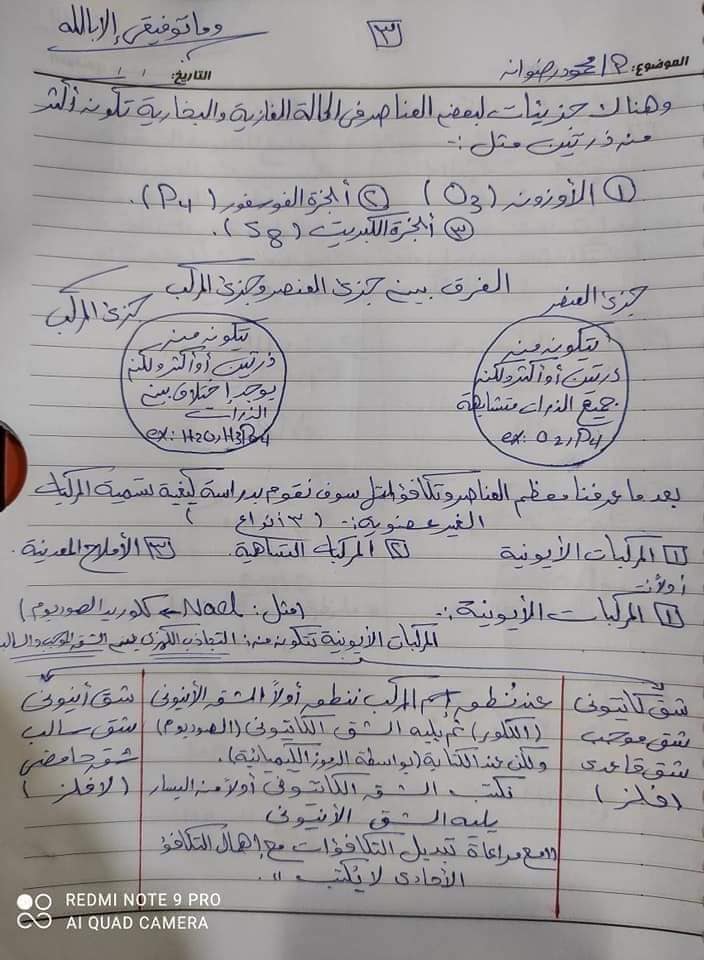 وما توفيقي إلا بالله
٣
الموضوع: م/ محمود رضوانه
التاريخ: / /
وهناك جزيئات لبعض العناصر فى الحالة الغازية والبخارية تكونه أكثر
منه ذرتين مثل :-
① الأوزونه (O3) ② أبخرة الفوسفور (P4).
③ أبخرة الكبريت (S8).
الفرق بينه جزئ العنصر وجزئ المركب
جزئ العنصر
يتكونه منه
ذرتين أو أكثر ولكنه
جميع الذرات متشابهة
ex: O2, P4
جزئ المركب
يتكونه منه
ذرتين أو أكثر ولكنه
يوجد إختلاف بينه
الذرات
ex: H2O, H3PO4
بعد ما عرفنا معظم العناصر وتكافؤ سوف نقوم بدراسة كيفية تسمية المركبات
الغير عضوية :- (٣ أنواع)
١ المركبات الأيونية ٢ المركبات التساهمية. ٣ الأملاح المعدنية.
أولاً :-
١ المركبات الأيونية :- (مثل: NaCl ← كلوريد الصوديوم)
المركبات الأيونية تتكونه منه: التجاذب الكهربى بينه الشق الموجب والسالب
شق كاتيونى
شق موجب
شق قاعدى
(فلز)
عند نُطقه إسم المركب ننطقه أولاً الشقه الأنيونى
(الكلور) ثم يليه الشق الكاتيونى (الصوديوم)
ولكن عند الكتابة (بواسطة الرموز الكيميائية).
نكتب الشقه الكاتيونى أولاً منه اليسار
يليه الشق الأنيونى
"مع مراعاة تبديل التكافؤات مع إهمال التكافؤ
الأحادى لا يُكتب".
شق أنيونى
شق سالب
شق حامضى
(لا فلز)
REDMI NOTE 9 PRO
AI QUAD CAMERA